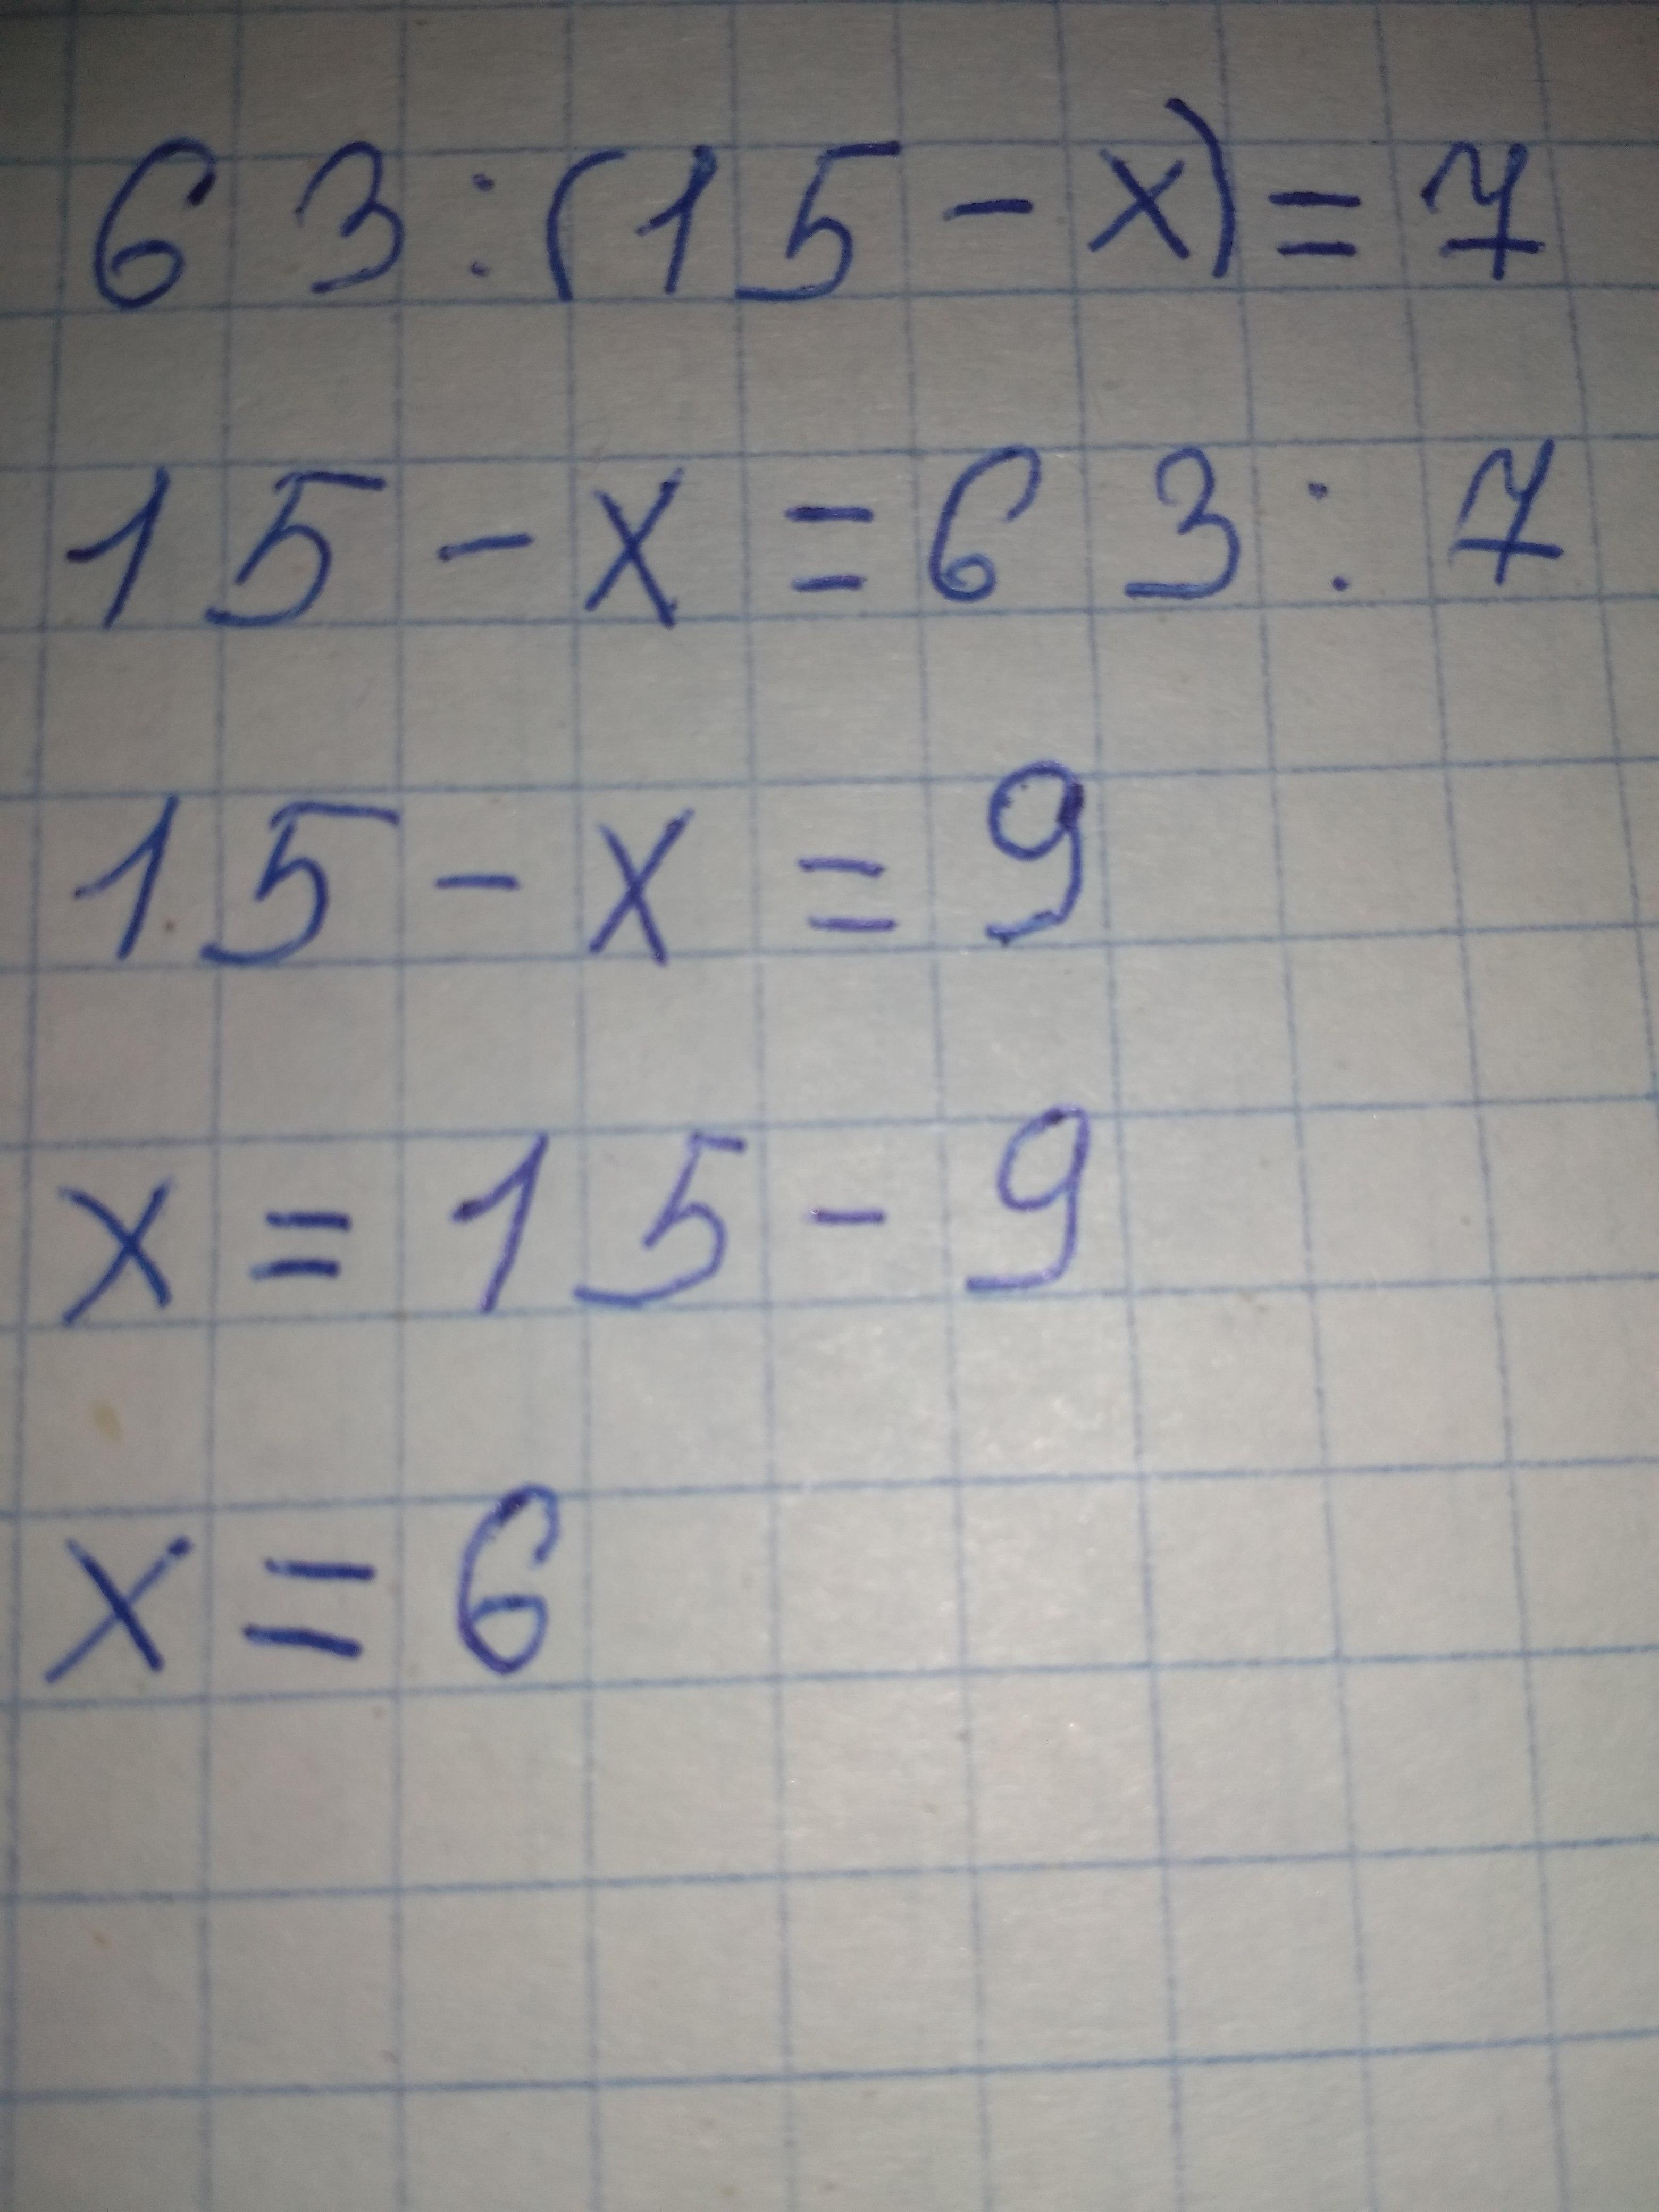 63:(15-x)=7
15-x=63:7
15-x=9
x=15-9
x=6